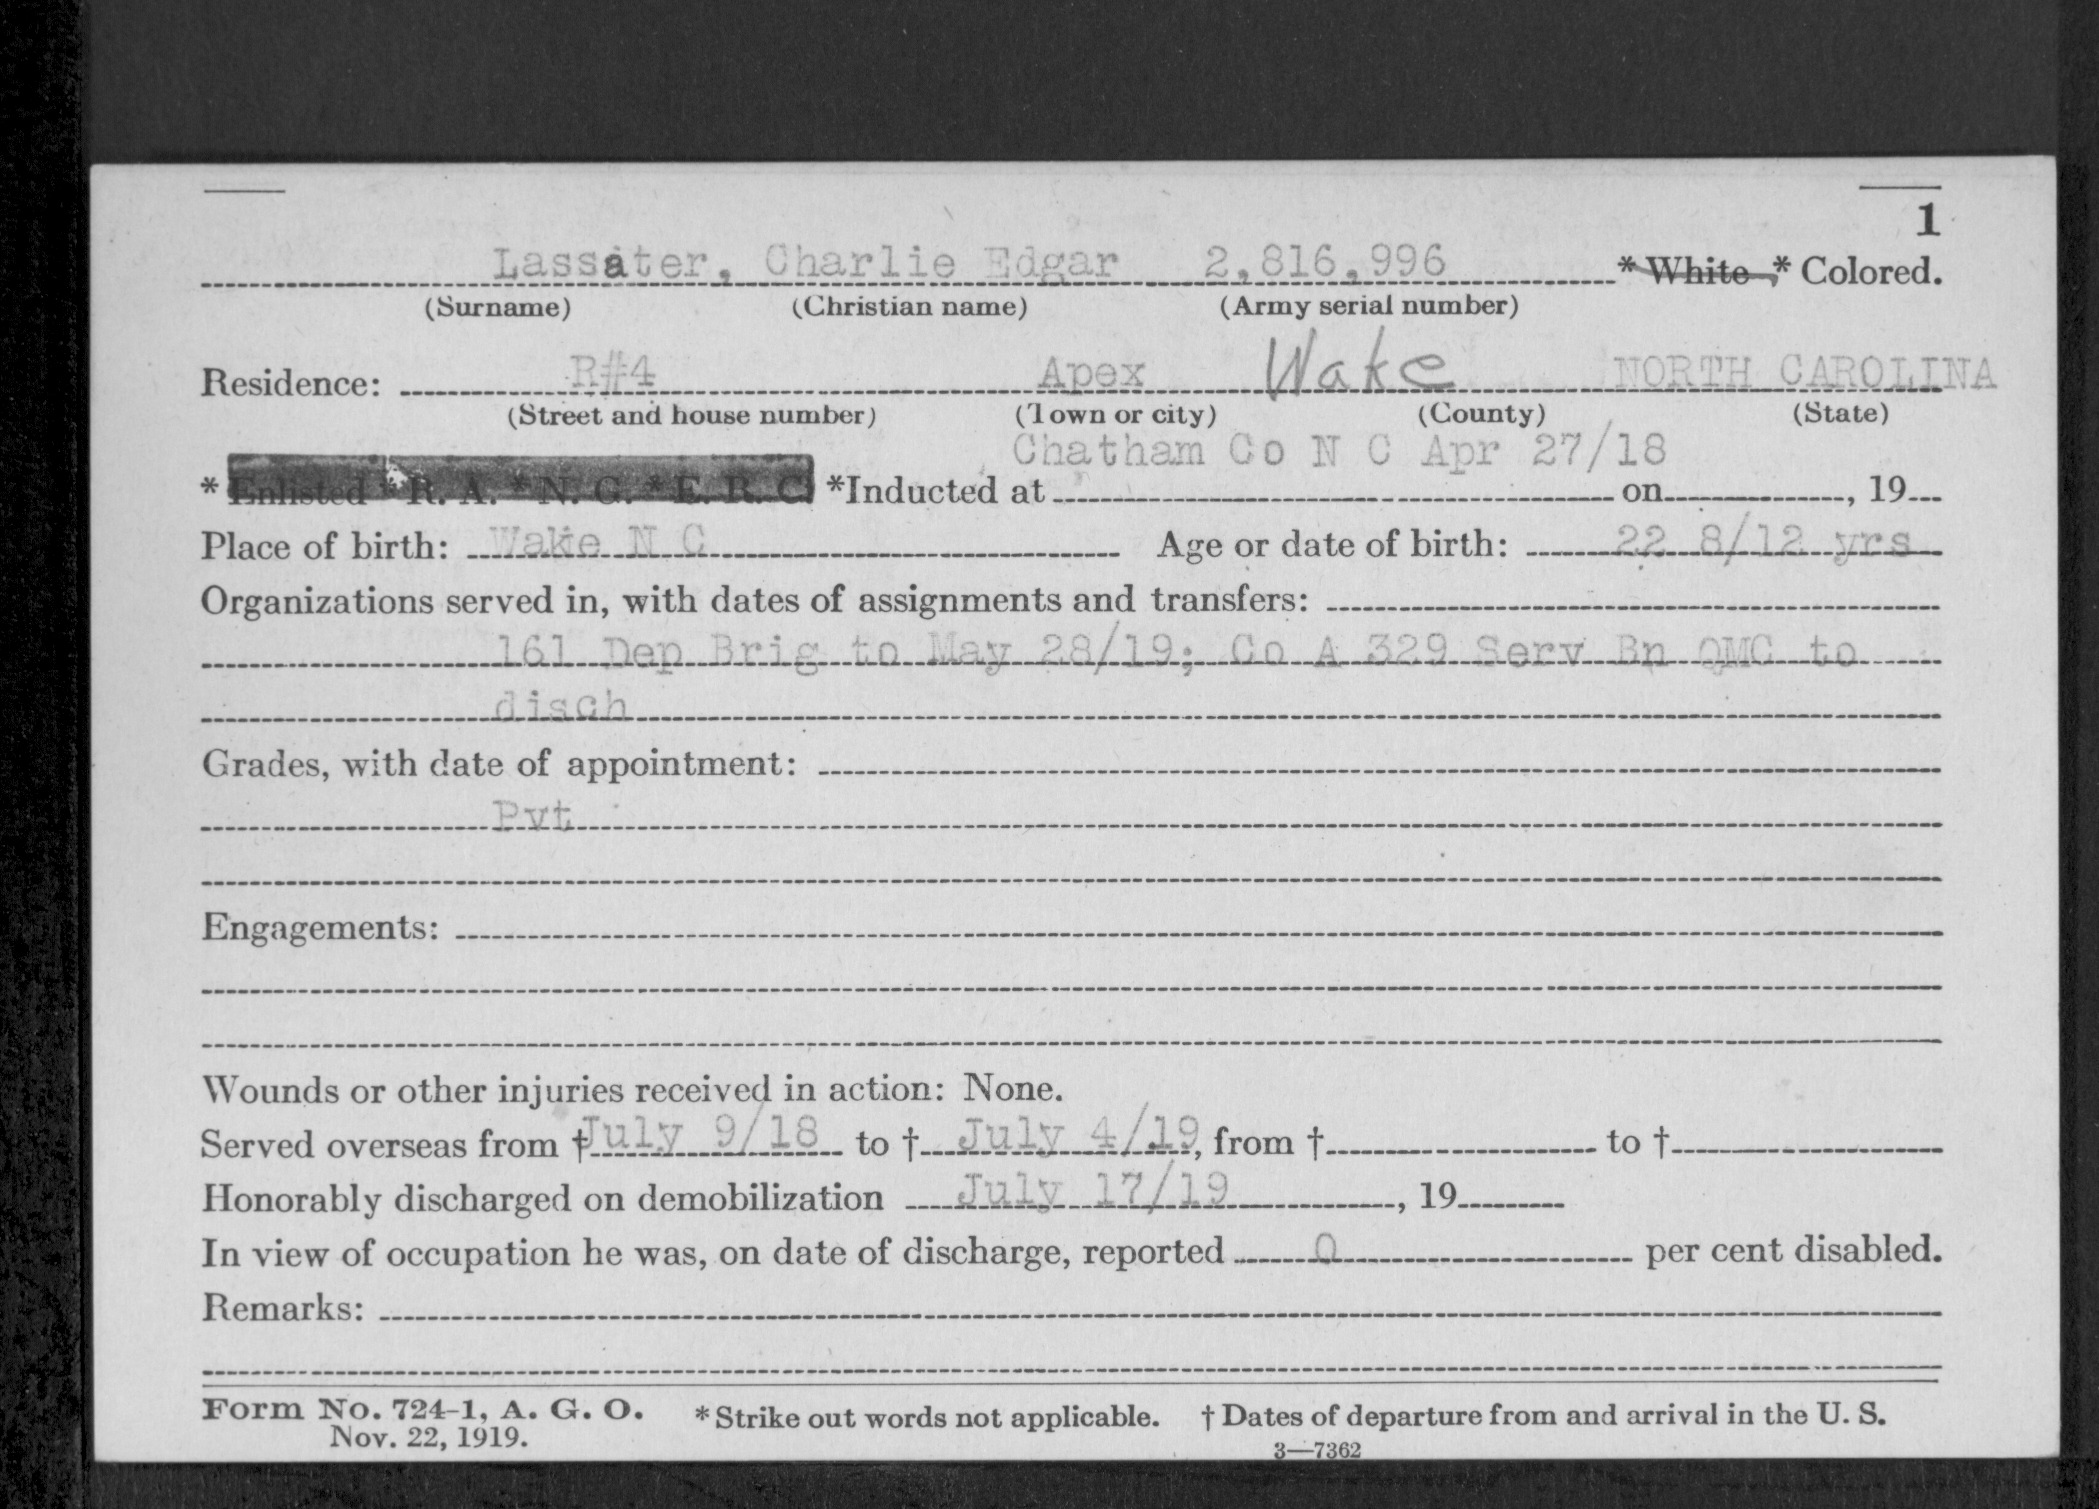 1
Lassater, Charlie Edgar 2,816,996 * White * Colored.
(Surname) (Christian name) (Army serial number)
Residence: R#4 Apex Wake NORTH CAROLINA
(Street and house number) (Town or city) (County) (State)
Chatham Co N C Apr 27/18
* Enlisted * R. A. * N. G. * E. R. C. *Inducted at on , 19
Place of birth: Wake N C Age or date of birth: 22 8/12 yrs
Organizations served in, with dates of assignments and transfers:
161 Dep Brig to May 28/19; Co A 329 Serv Bn QMC to
disch
Grades, with date of appointment:
Pvt
Engagements:
Wounds or other injuries received in action: None.
Served overseas from † July 9/18 to † July 4/19, from † to †
Honorably discharged on demobilization July 17/19 , 19
In view of occupation he was, on date of discharge, reported 0 per cent disabled.
Remarks:
Form No. 724-1, A. G. O. * Strike out words not applicable. † Dates of departure from and arrival in the U. S.
Nov. 22, 1919.
3—7362